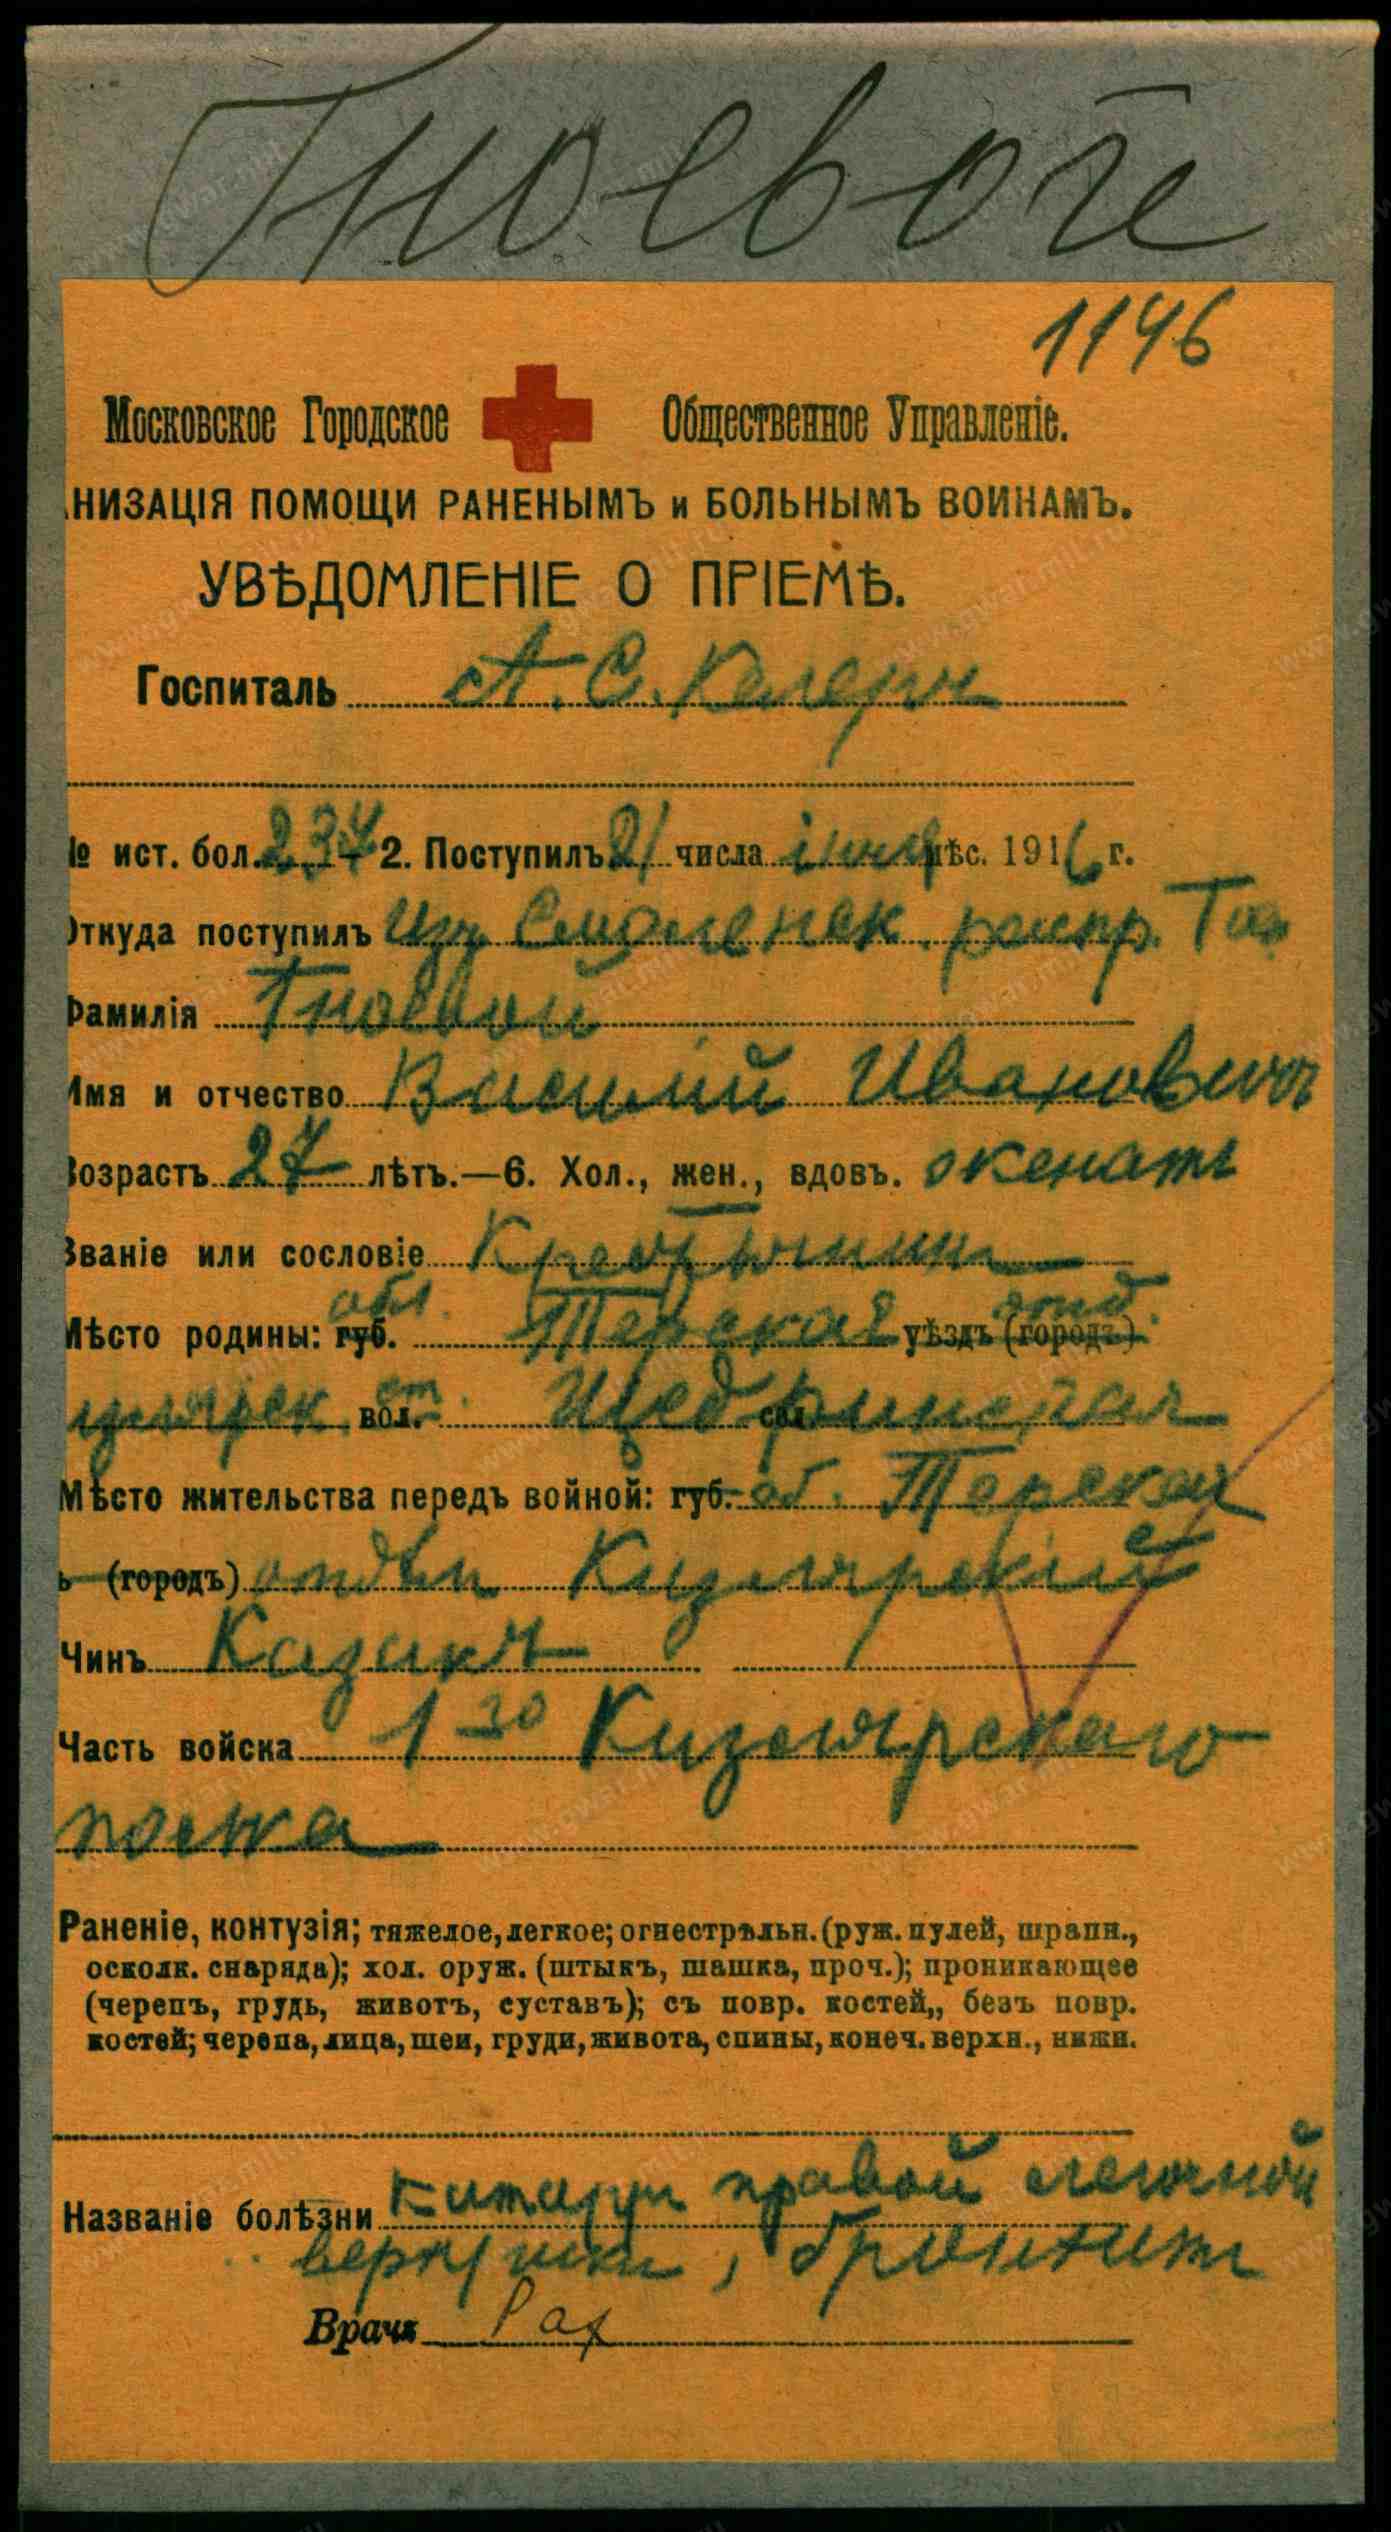 Гноевой
1146
Московское Городское Общественное Управленіе.
АНИЗАЦІЯ ПОМОЩИ РАНЕНЫМЪ и БОЛЬНЫМЪ ВОИНАМЪ.
УВѢДОМЛЕНІЕ О ПРІЕМѢ.
Госпиталь А. С. Келеръ
№ ист. бол. 237 2. Поступилъ 21 числа мѣс. 1916 г.
Откуда поступилъ Изъ Смоленск. распр.
Фамилія Гноевой
Имя и отчество Василій Ивановичъ
Возрастъ 27 лѣтъ.—6. Хол., жен., вдовъ. женатъ
Званіе или сословіе Крестьянинъ
Мѣсто родины: губ. обл. Терская уѣздъ (городъ) отд.
Кизлярск вол. ст. сел. Щедринская
Мѣсто жительства передъ войной: губ. об. Терская
ъ (городъ) отдѣлъ Кизлярскій
Чинъ Казакъ
Часть войска 1го Кизлярскаго
полка
Раненіе, контузія; тяжелое, легкое; огнестрѣльн. (руж. пулей, шрапн.,
осколк. снаряда); хол. оруж. (штыкъ, шашка, проч.); проникающее
(черепъ, грудь, животъ, суставъ); съ повр. костей,, безъ повр.
костей; черепа, лица, шеи, груди, живота, спины, конеч. верхн., нижн.
Названіе болѣзни Катарръ правой легочной
верхушки, бронхитъ
Врачъ